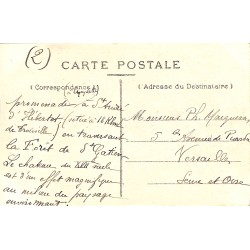 (2)
CARTE POSTALE
(Correspondance)
(Adresse du Destinataire)
promenades à St André
d'Hébertot (entre à 16 Klm
de Trouville) en traversant
la Forêt de St Gatien
Le chateau du XVIIe siècle
est d'un effet magnifique
au milieu du paysage
environnant.
Monsieur Ph.
5 Avenue de
Versailles
Seine et Oise